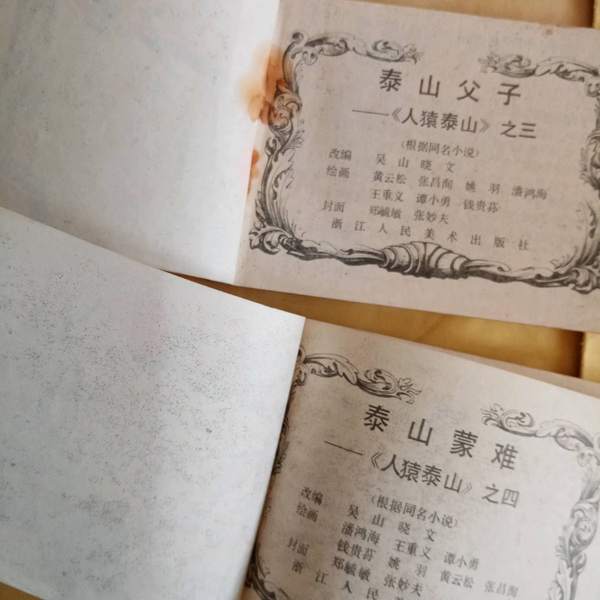 泰山父子
——《人猿泰山》之三
(根据同名小说)
改编 吴山 晓文
绘画 黄云松 张昌洵 姚羽 潘鸿海
王重义 谭小勇 钱贵荪
封面 郑毓敏 张妙夫
浙江人民美术出版社
泰山蒙难
——《人猿泰山》之四
(根据同名小说)
改编 吴山 晓文
绘画 潘鸿海 王重义 谭小勇
钱贵荪 姚羽 黄云松 张昌洵
封面 郑毓敏 张妙夫
浙江人民